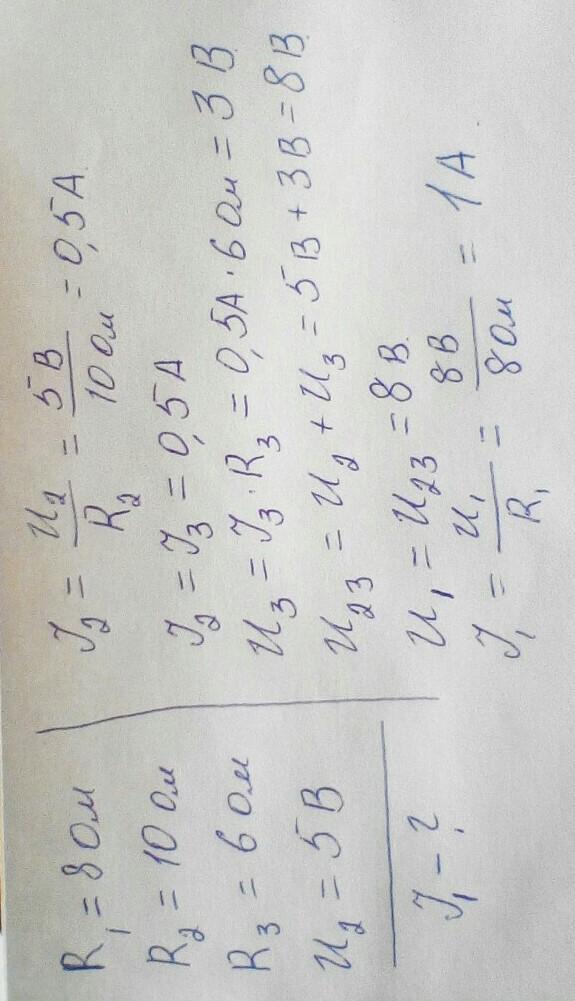 R₁ = 8 Ом
R₂ = 10 Ом
R₃ = 6 Ом
U₂ = 5 В
I₁ - ?
I₂ = U₂/R₂ = 5 В/10 Ом = 0,5 А
I₂ = I₃ = 0,5 А
U₃ = I₃ · R₃ = 0,5А · 6 Ом = 3 В
U₂₃ = U₂ + U₃ = 5 В + 3 В = 8 В
U₁ = U₂₃ = 8 В
I₁ = U₁/R₁ = 8В/8 Ом = 1 А